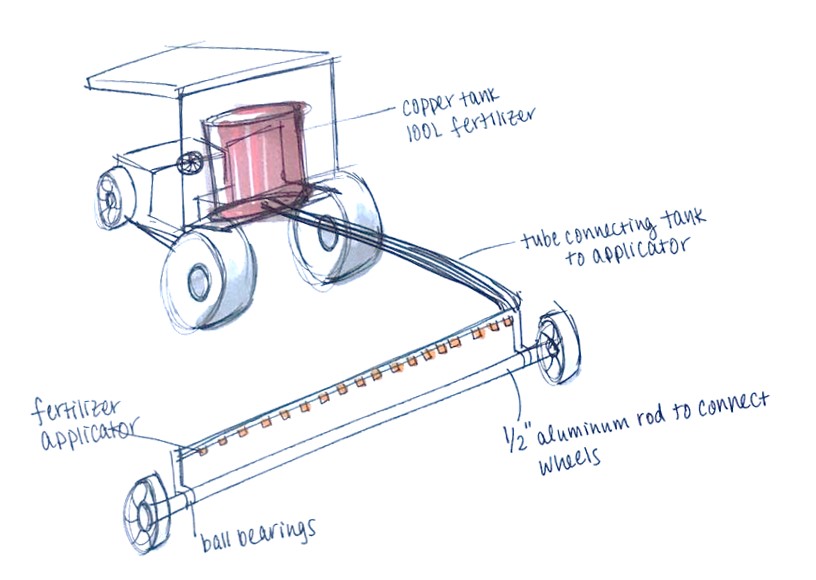 copper tank
100L fertilizer
tube connecting tank
to applicator
fertilizer
applicator
1/2" aluminum rod to connect
wheels
ball bearings